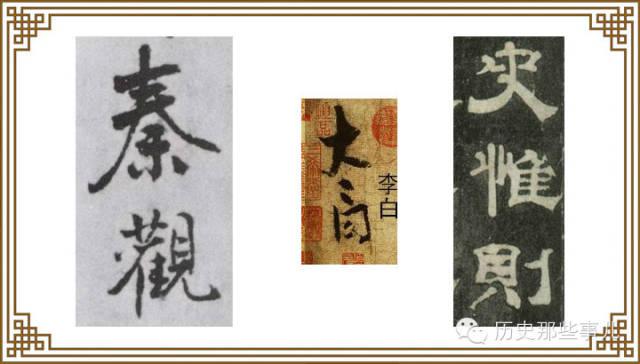 秦觀
太白
李白
史惟則
历史那些事儿